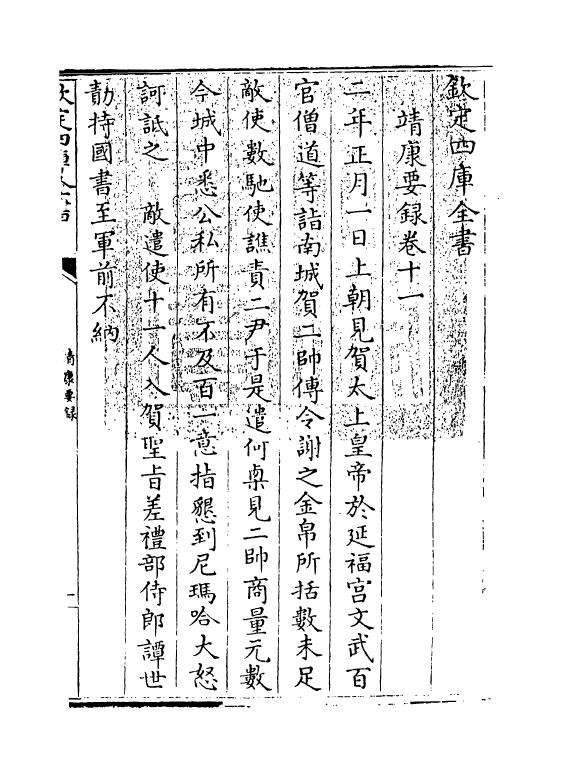 欽定四庫全書
靖康要録卷十一
二年正月一日上朝見賀太上皇帝於延福宫文武百
官僧道等詣南城賀二帥傳令謝之金帛所括數未足
敵使數馳使譙責二尹于是遣何㮚見二帥商量元數
令城中悉公私所有不及百一意指懇到尼瑪哈大怒
訶詆之　敵遣使十一人入賀聖旨差禮部侍郎譚世
勣持國書至軍前不納
靖康要録
一